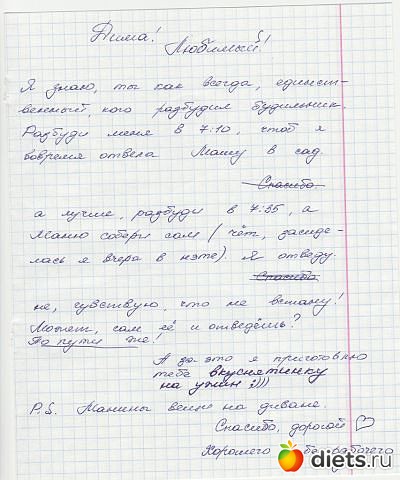 Дима!
Любимый!
Я знаю, ты как всегда, единст-
венный, кого разбудил будильник.
Разбуди меня в 7:10, чтоб я
вовремя отвела Машу в сад.
Спасибо
а лучше, разбуди в 7:35, а
Маню собери сам (чёт, засиде-
лась я вчера в нэте). Я отведу.
Спасибо
не, чувствую, что не встану!
Может, сам её и отведёшь?
По пути же!
А за это я приготовлю
тебе вкуснятинку
на ужин :)))
P.S. Манины вещи на диване.
Спасибо, дорогой ♡
Хорошего рабочего
diets.ru